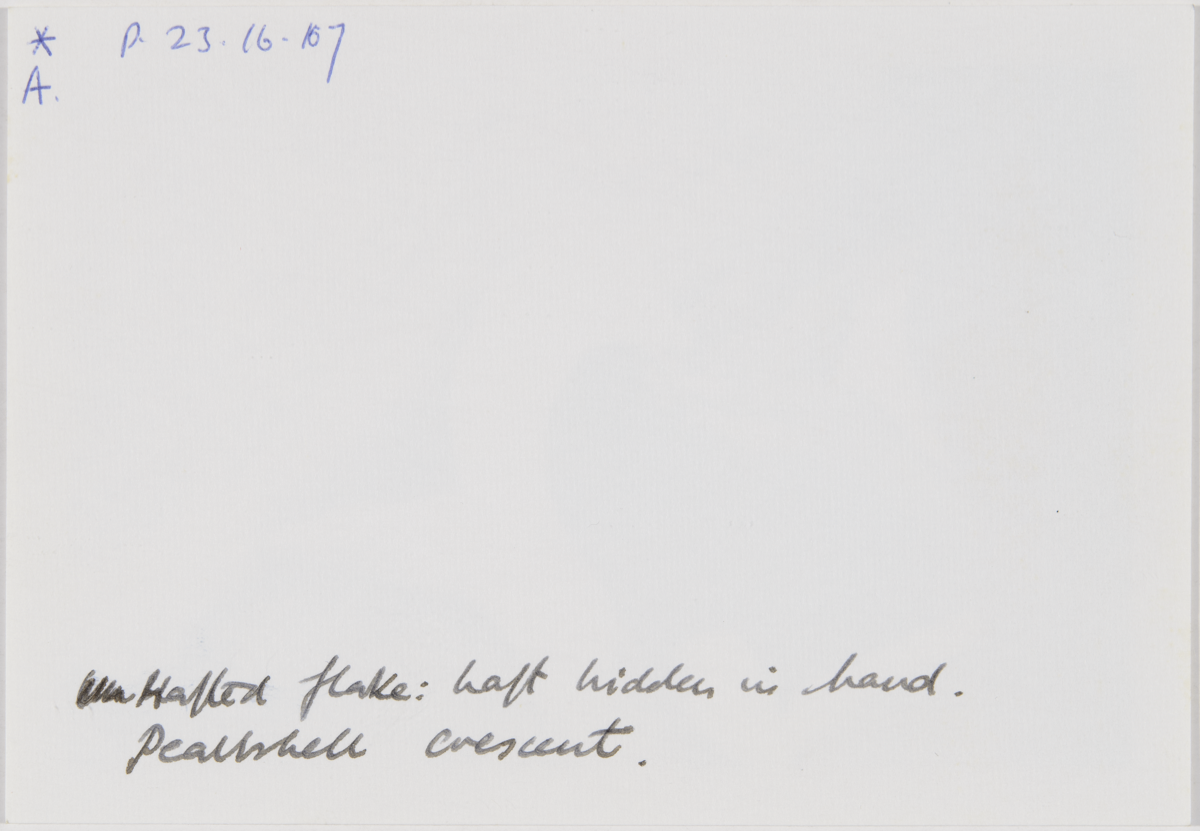 * P. 23.16.167
A.
Hafted flake: haft hidden in hand.
Pearlshell crescent.